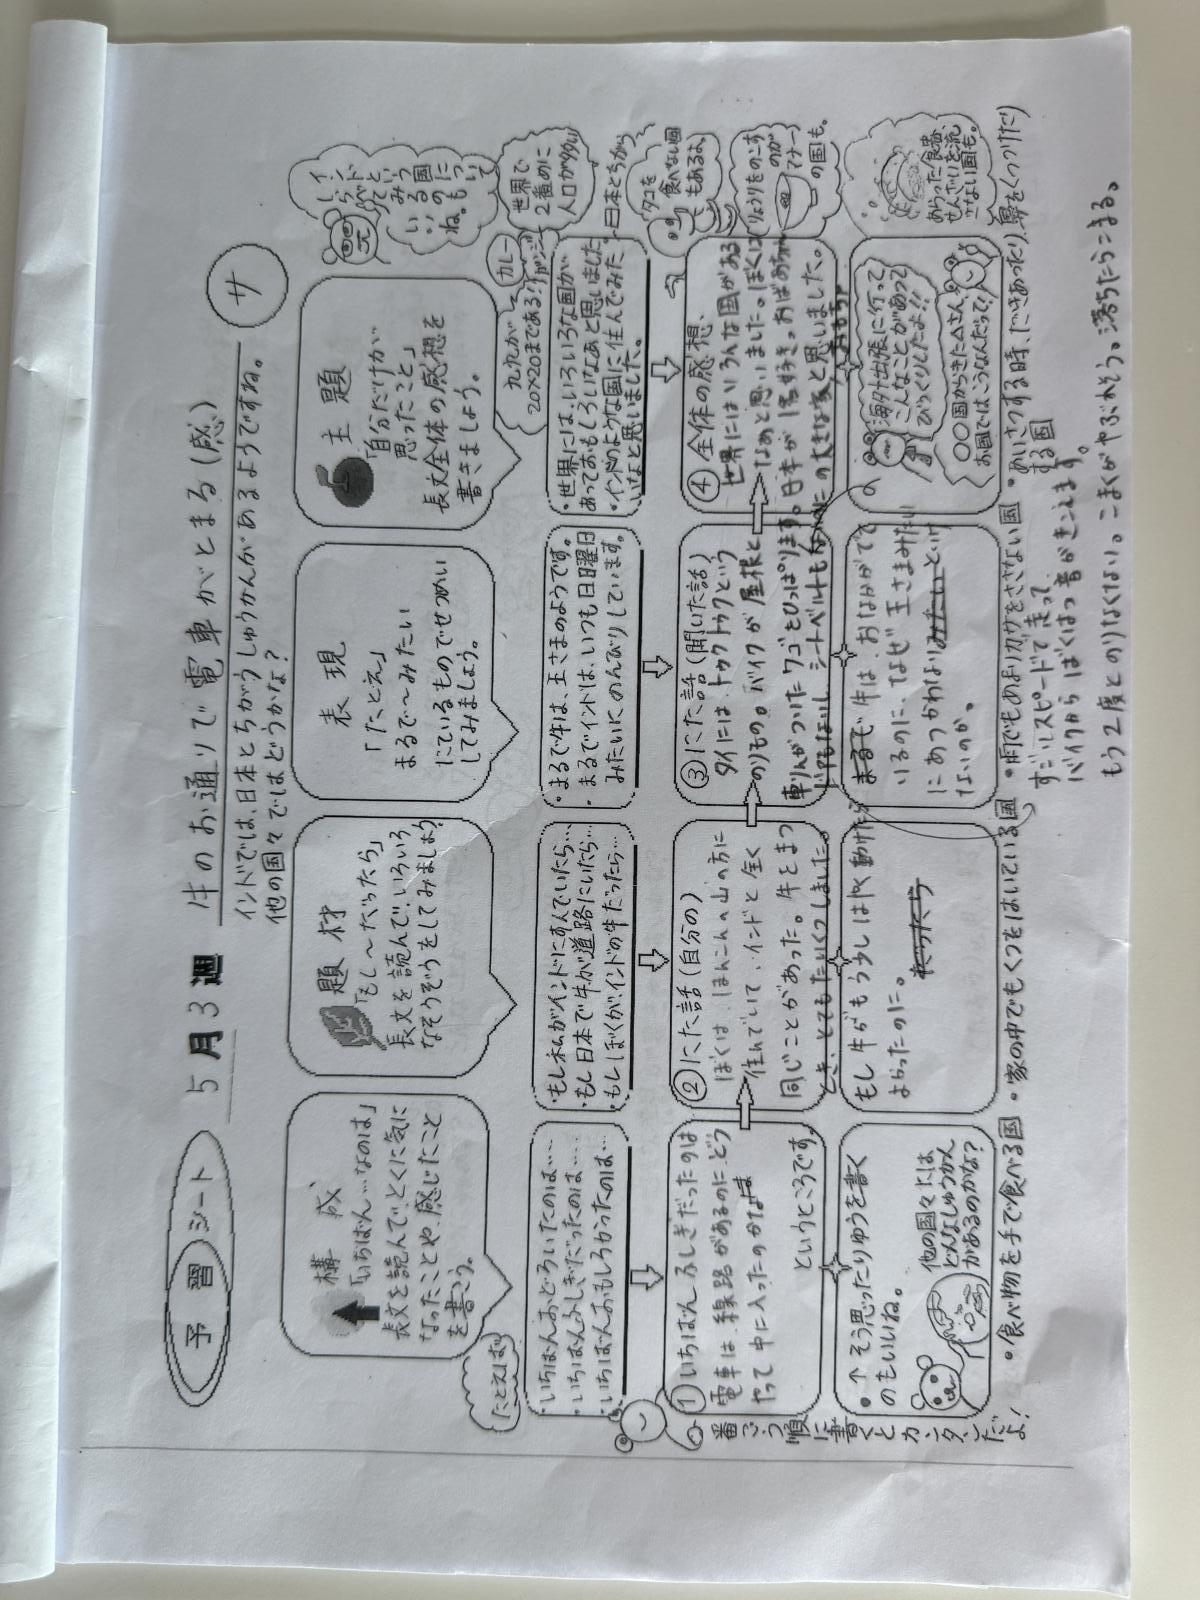 予習シート
5月3週
牛のお通りで電車がとまる(感)
サ
インドでは、日本とちがうしゅうかんがあるようですね。
他の国々ではどうかな?
構成
「いちばん…なのは」
長文を読んで、とくに気に
なったことや、感じたこと
を書こう。
題材
「もし〜だったら」
長文を読んで、いろいろ
なそうぞうをしてみましょう
表現
「たとえ」
まるで〜みたい
にているものでせつめい
してみましょう。
主題
「自分だけが
思ったこと」
長文全体の感想を
書きましょう。
インドじん
たとえば
・いちばんおどろいたのは……
・いちばんふしぎだったのは……
・いちばんおもしろかったのは…
・もし私がインドにすんでいたら…
・もし日本で牛が道路にいたら…
・もしぼくが、インドの牛だったら…
・まるで牛は、王さまのようです。
・まるでインドは、いつも日曜日
みたいにのんびりしています。
・世界には、いろいろな国が
あっておもしろいなあと思いました
・インドのような国に住んでみた
いなと思いました。
九九が
20×20まである!
カレー
世界で
2番めに
人口が多い
日本とちがう
タコを
食べない国
もあるよ。
りょうりをのこす
のが
マナー
の国も。
①いちばんふしぎだったのは
電車は、線路があるのに、どう
やって中に入ったのかな
というところです。
②にた話(自分の)
ぼくは、はんこんの山の方に
住んでいて、インドと全く
同じことがあった。牛とまつ
とき、とてもたいくつしました。
もし牛がもう少しはやく動けたら
よかったのに。
③にた話(聞いた話)
タイには、トゥクトゥクという
のりもの。バイクが屋根と
車りんがついたワゴをひっぱります。
ドアもないし、シートベルトもない
まるで牛は、おなかがでて
いるのに、なぜ王さまみたいに
にあつかわない
ないのか。
④全体の感想、
世界にはいろんな国がある
なあと思いました。ぼくは
日本が1番好き。おばあちゃん
の大きな家と思いました。
・↑そう思ったりゆうを書く
のもいいね。
他の国々には
どんなしゅうかん
があるのかな?
海外出張に行って
こんなことがあって
びっくりしたよ!!
○○国からきた△さん、
お国では、こうなんだって!
あらった食器、
せんざいを流
さない国も。
番ごう順に書くとカンタンだよ!
・食べ物を手で食べる国
・家の中でもくつをはいている国
・雨でもあまりカサをささない国
・あいさつする時、だきあったり、鼻をくっつけたり
する国
すごいスピードで走って、
バイクからばくはつ音がきこえます。
もう2度とのりなくない。こまくがやぶれそう。落ちたらこまる。